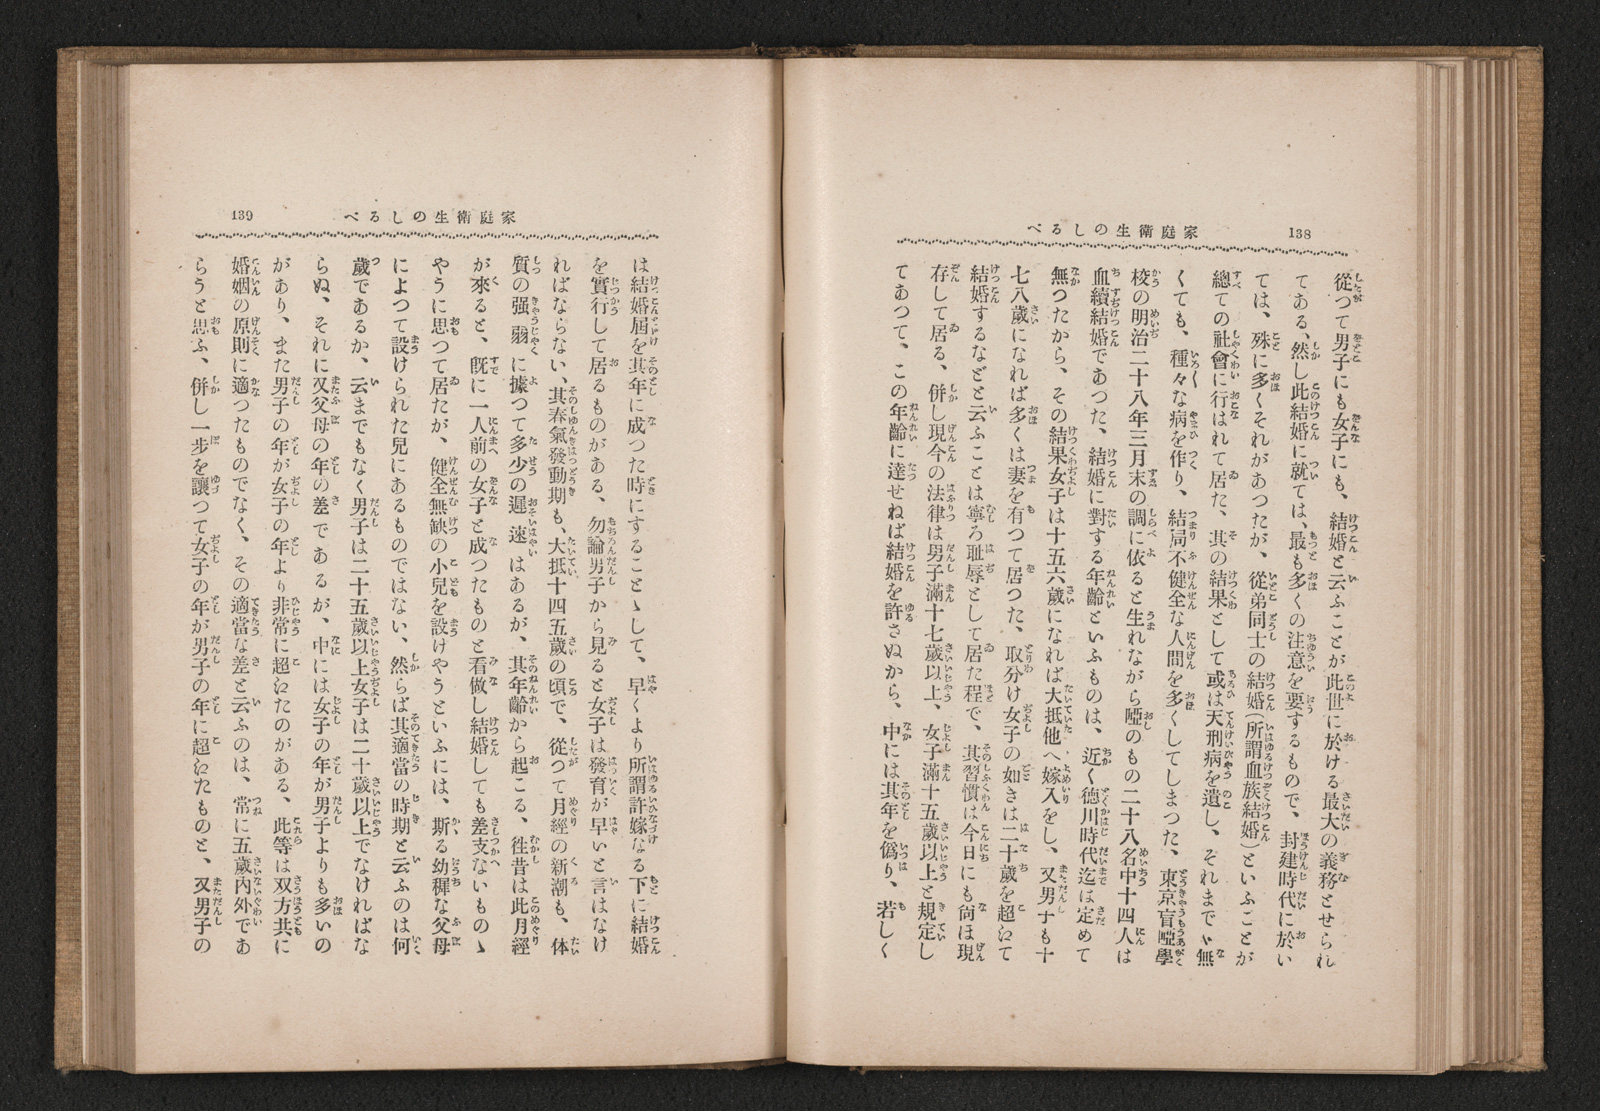 138
家庭衛生のしるべ
從つて男子にも女子にも、結婚と云ふことが此世に於ける最大の義務とせられ
てある、然し此結婚に就ては、最も多くの注意を要するもので、封建時代に於い
ては、殊に多くそれがあつたが、從弟同士の結婚(所謂血族結婚)といふことが
總ての社會に行はれて居た、其の結果として或は天刑病を遺し、それまでゝ無
くても、種々な病を作り、結局不健全な人間を多くしてしまつた、東京盲啞學
校の明治二十八年三月末の調に依ると生れながら啞のもの二十八名中十四人は
血續結婚であつた、結婚に對する年齡といふものは、近く德川時代迄は定めて
無つたから、その結果女子は十五六歲になれば大抵他へ嫁入をし、又男子も十
七八歲になれば多くは妻を有つて居つた、取分け女子の如きは二十歲を超江て
結婚するなどと云ふことは寧ろ耻辱として居た程で、其習慣は今日にも尙ほ現
存して居る、併し現今の法律は男子滿十七歲以上、女子滿十五歲以上と規定し
てあつて、この年齡に達せねば結婚を許さぬから、中には其年を僞り、若しく
139
家庭衛生のしるべ
は結婚屆を其年に成つた時にすることゝして、早くより所謂許嫁なる下に結婚
を實行して居るものがある、勿論男子から見ると女子は發育が早いと言はなけ
ればならない、其春氣發動期も、大抵十四五歲の頃で、從つて月經の新潮も、体
質の强弱に據つて多少の遲速はあるが、其年齡から起こる、徃昔は此月經
が來ると、旣に一人前の女子と成つたものと看做し結婚しても差支ないものゝ
やうに思つて居たが、健全無缺の小兒を設けやうといふには、斯る幼穉な父母
によつて設けられた兒にあるものではない、然らば其適當の時期と云ふのは何
歲であるか、云までもなく男子は二十五歲以上女子は二十歲以上でなければな
らぬ、それに又父母の年の差であるが、中には女子の年が男子よりも多いの
があり、また男子の年が女子の年より非常に超江たのがある、此等は双方共に
婚姻の原則に適つたものでなく、その適當な差と云ふのは、常に五歲內外であ
らうと思ふ、併し一步を讓つて女子の年が男子の年に超江たものと、又男子の